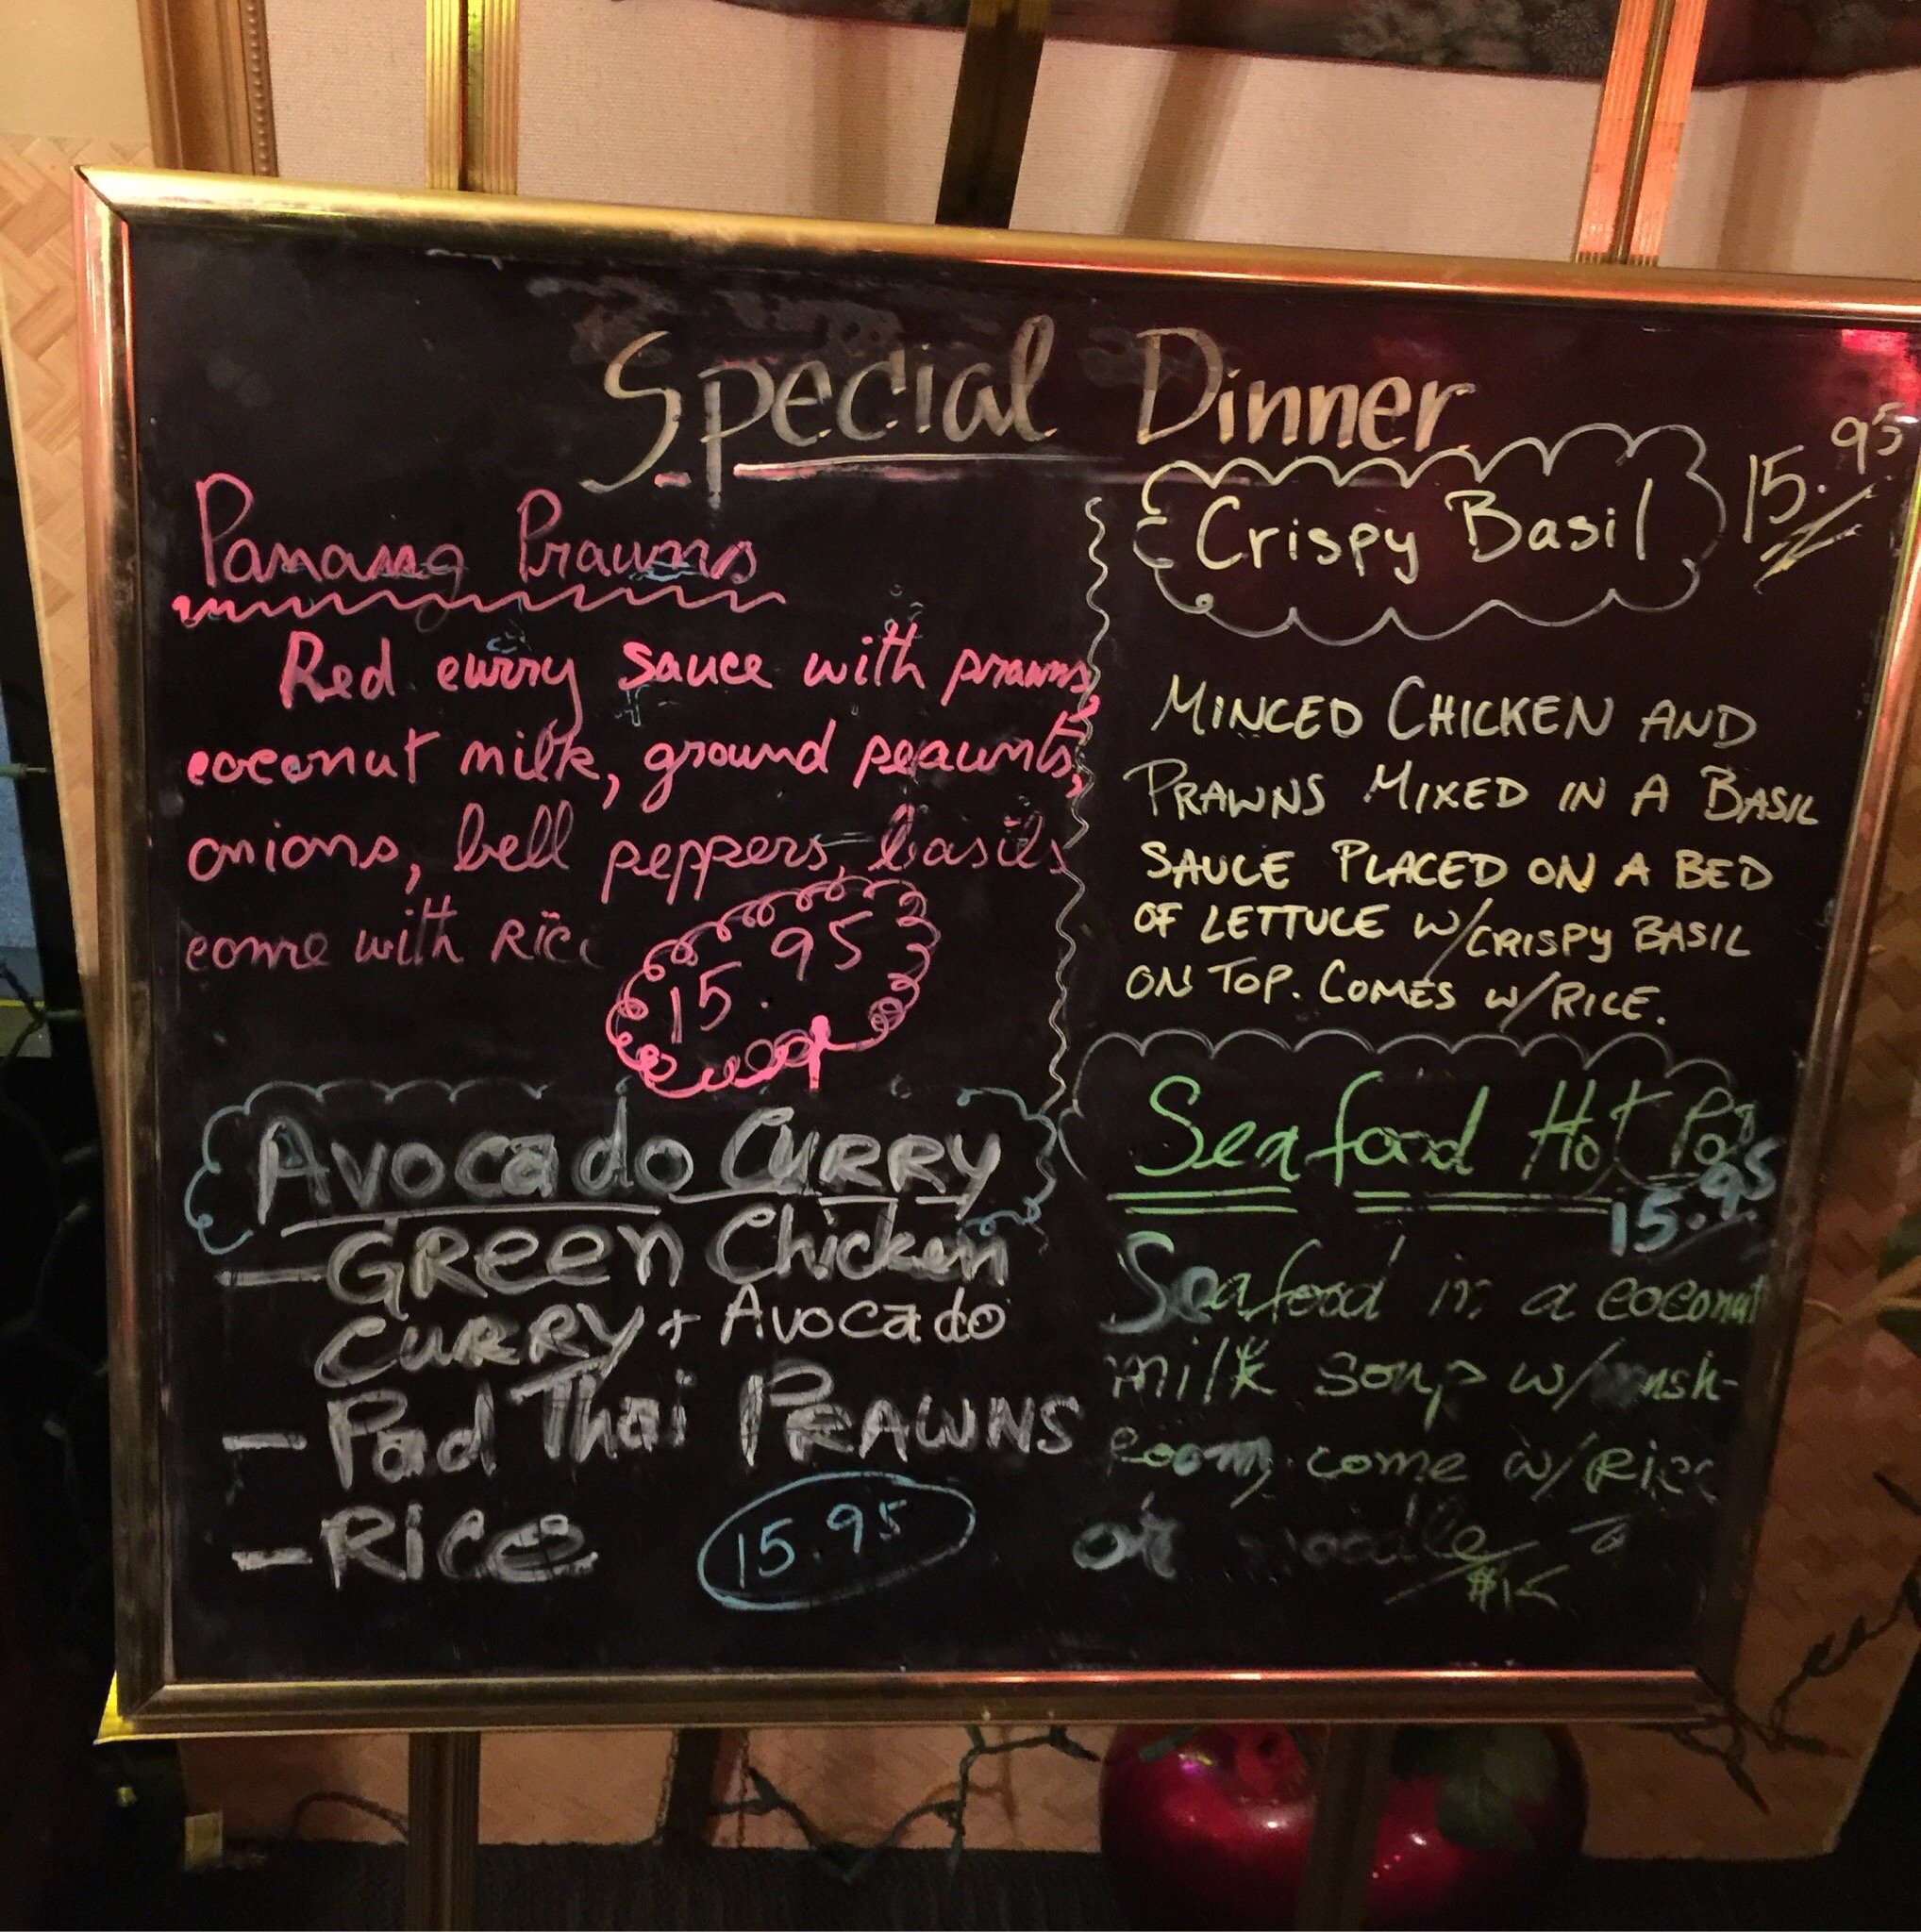 Special Dinner
Panang Prawns
Red curry sauce with prawns,
coconut milk, ground peaunts,
onions, bell peppers, basils
come with Rice
15.95
Crispy Basil
15.95
MINCED CHICKEN AND
PRAWNS MIXED IN A BASIL
SAUCE PLACED ON A BED
OF LETTUCE W/CRISPY BASIL
ON TOP. COMES W/RICE.
Avocado CURRY
- GReen Chicken
CURRY + Avocado
- Pad Thai PRAWNS
- Rice
15.95
Seafood Hot Pot
15.95
Seafood in a coconut
milk soup w/mush-
Room, come w/Rice
or noodle